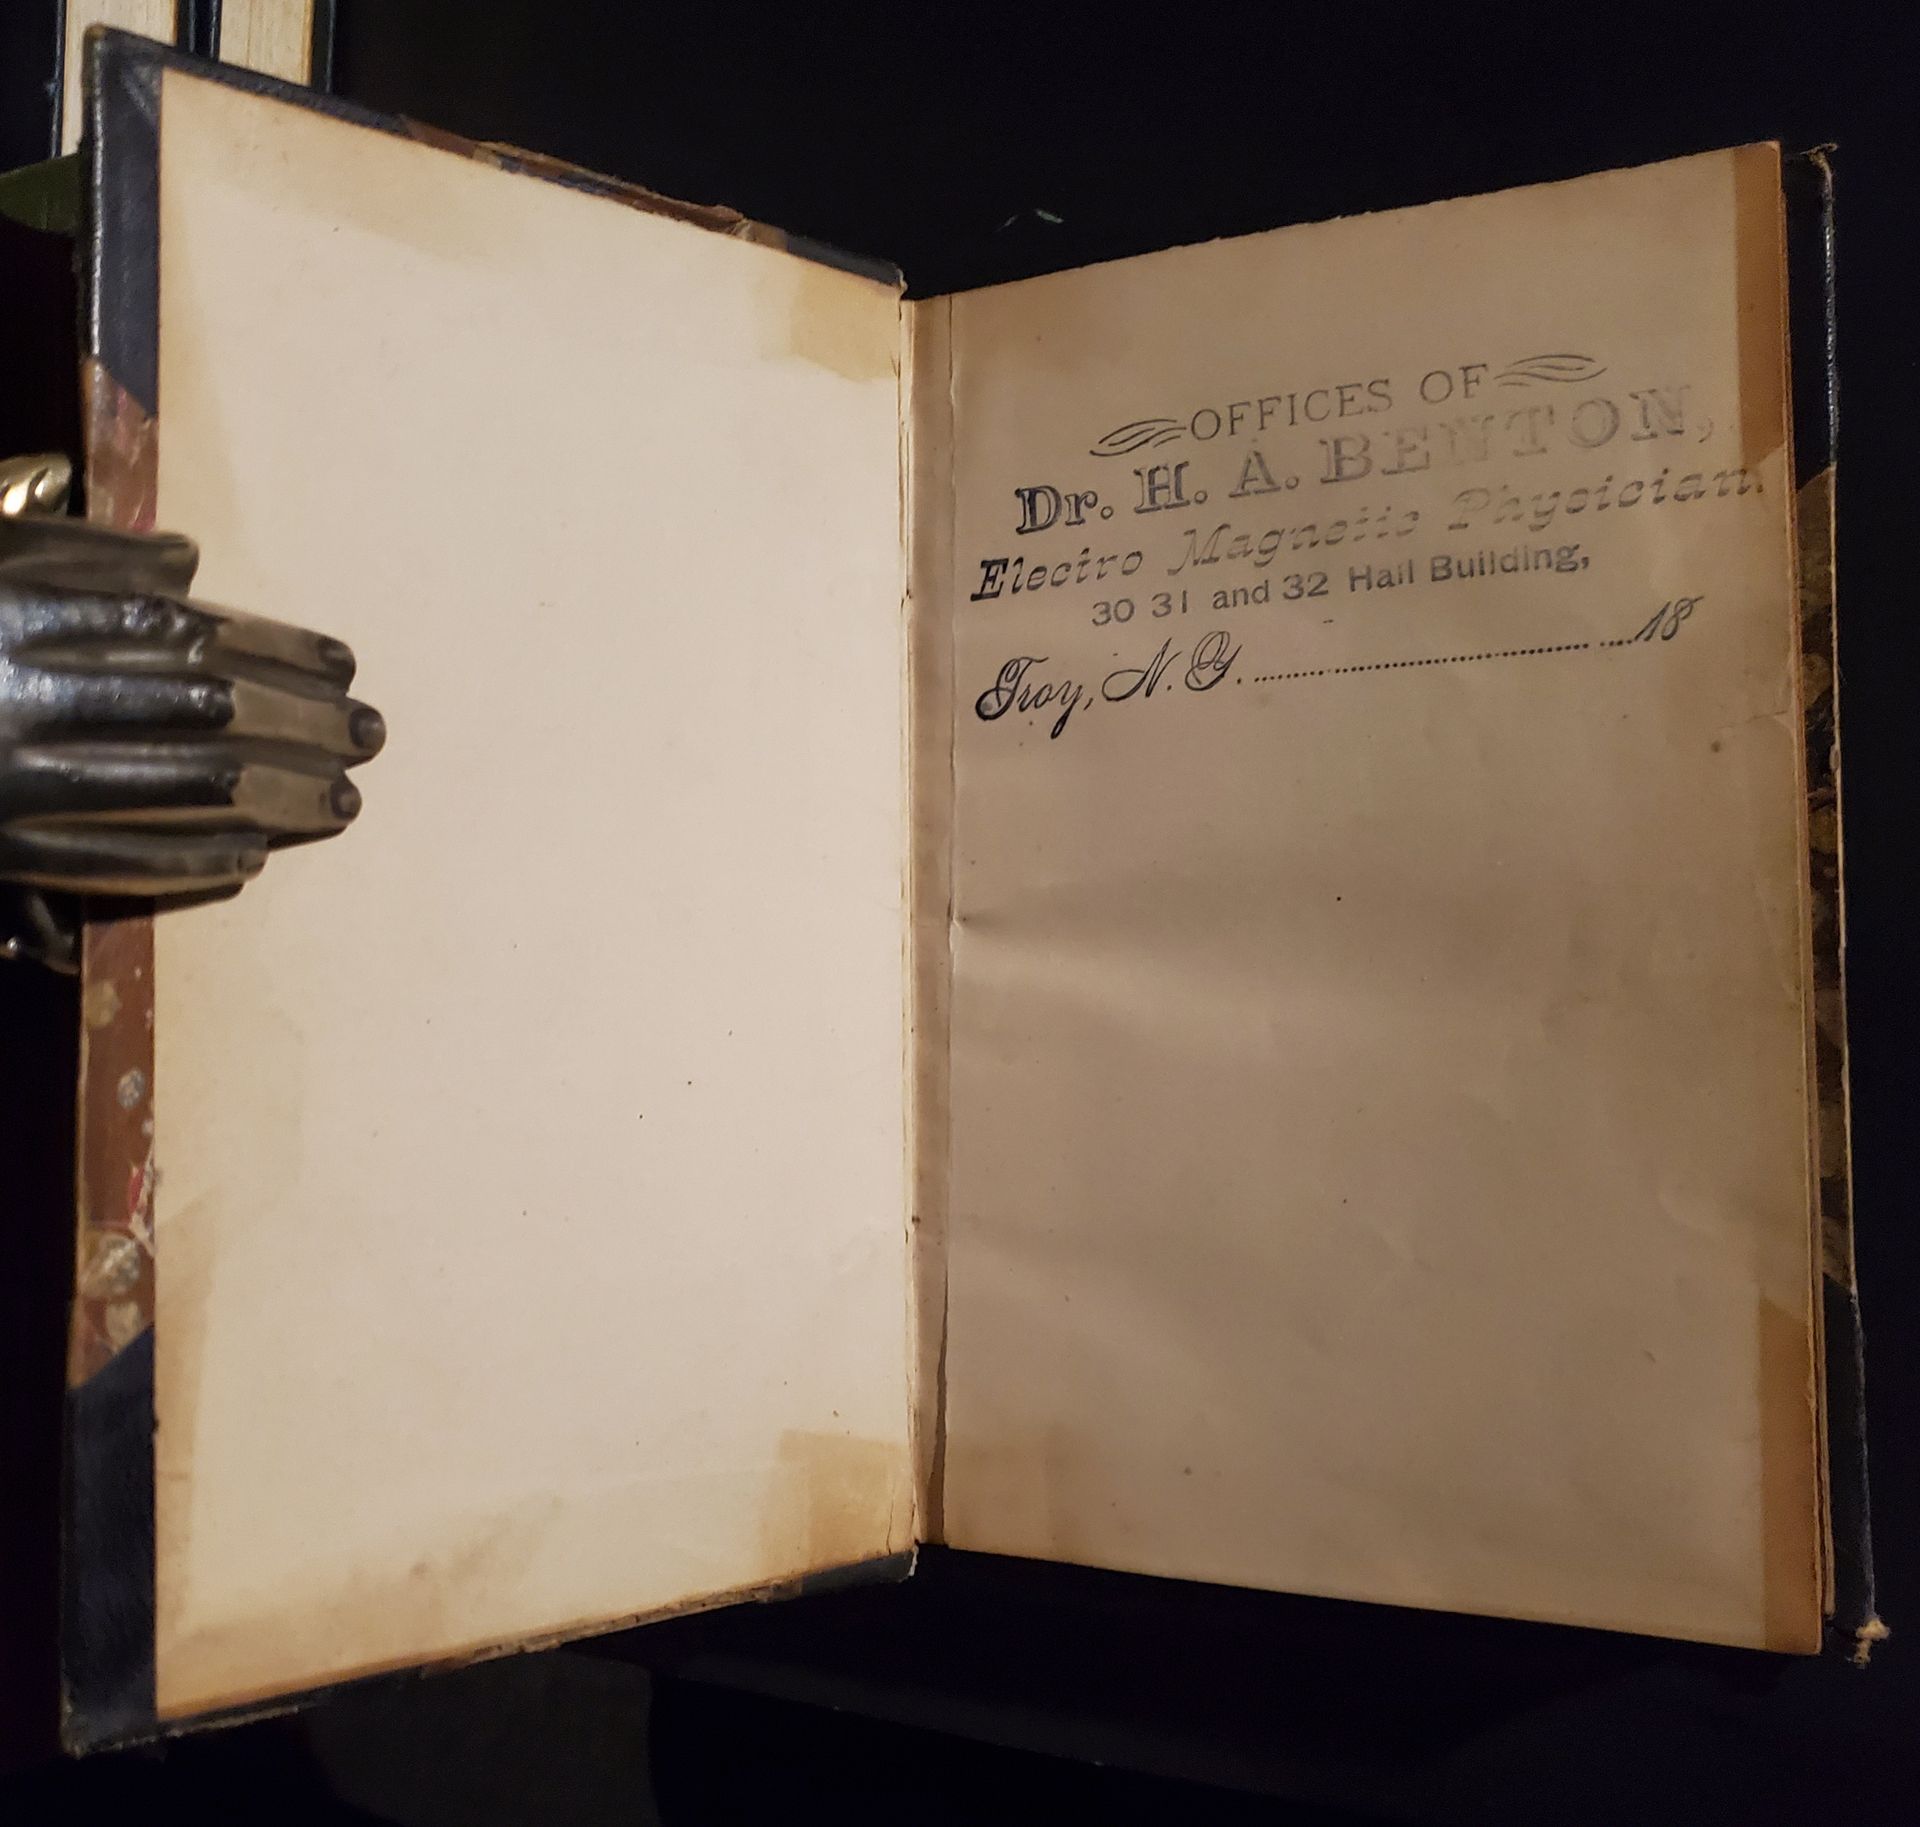 OFFICES OF
Dr. H. A. BENTON,
Electro Magnetic Physician.
30 31 and 32 Hall Building,
Troy, N.Y. .................... 18